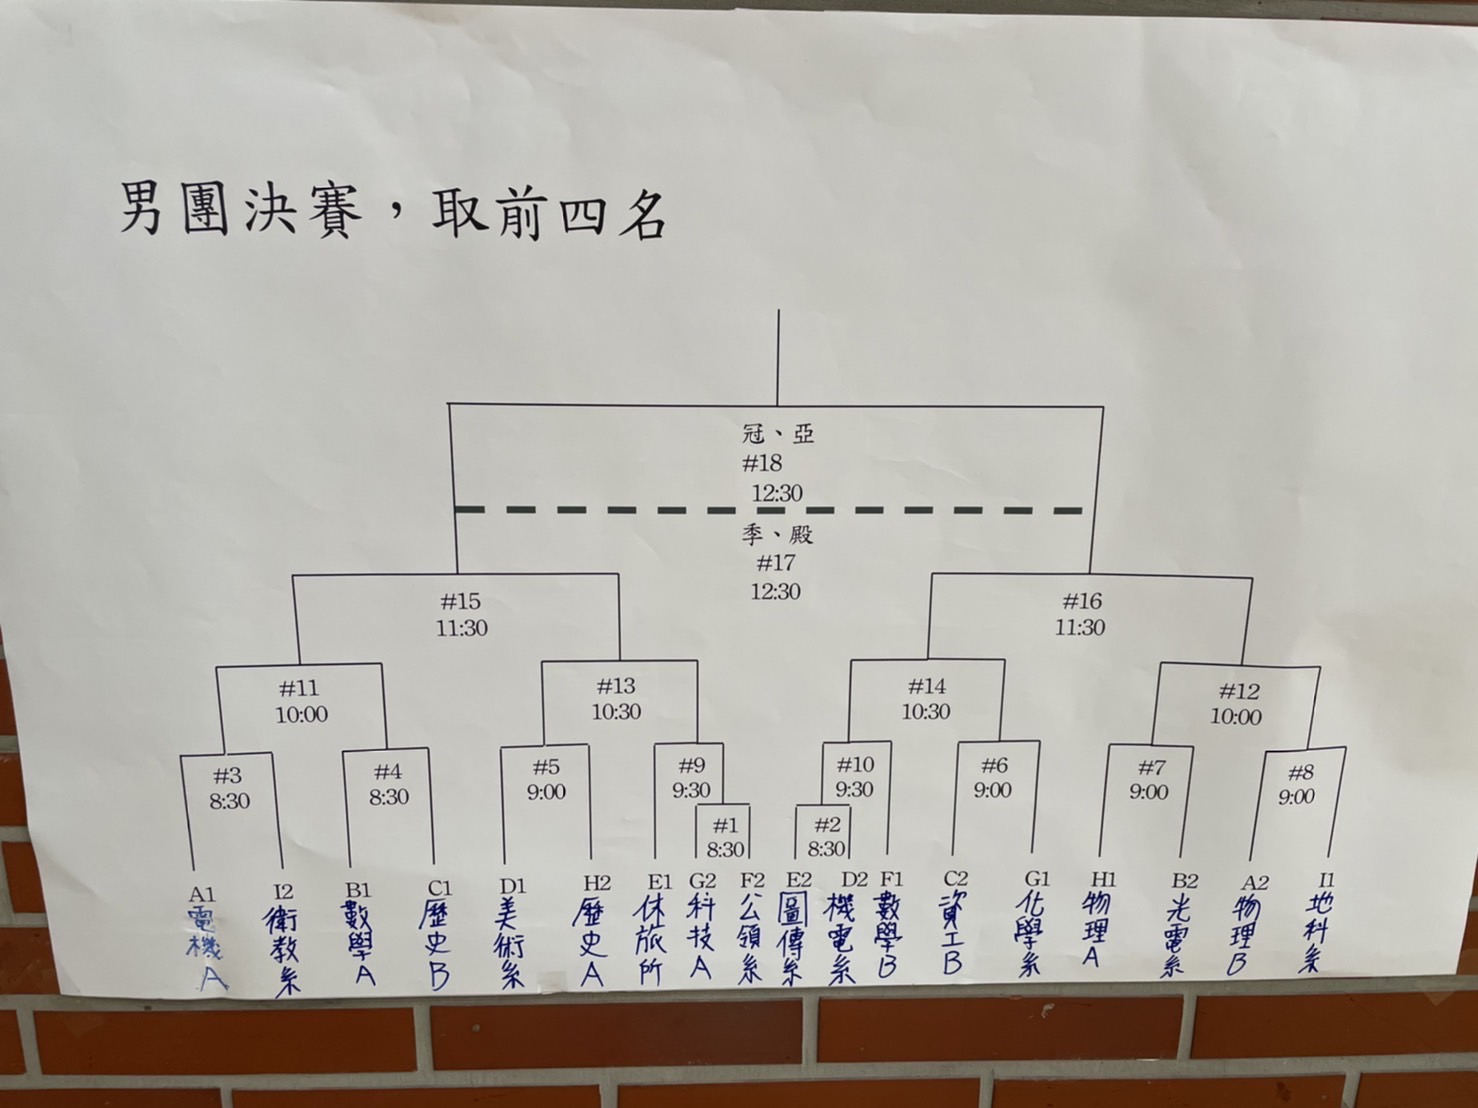 男團決賽，取前四名
冠、亞
#18
12:30
季、殿
#17
12:30
#15
11:30
#16
11:30
#11
10:00
#13
10:30
#14
10:30
#12
10:00
#3
8:30
#4
8:30
#5
9:00
#9
9:30
#10
9:30
#6
9:00
#7
9:00
#8
9:00
#1
8:30
#2
8:30
A1
電機A
I2
衛教系
B1
數學A
C1
歷史B
D1
美術系
H2
歷史A
E1
休旅所
G2
科技A
F2
公領系
E2
圖傳系
D2
機電系
F1
數學B
C2
資工B
G1
化學系
H1
物理A
B2
光電系
A2
物理B
I1
地科系